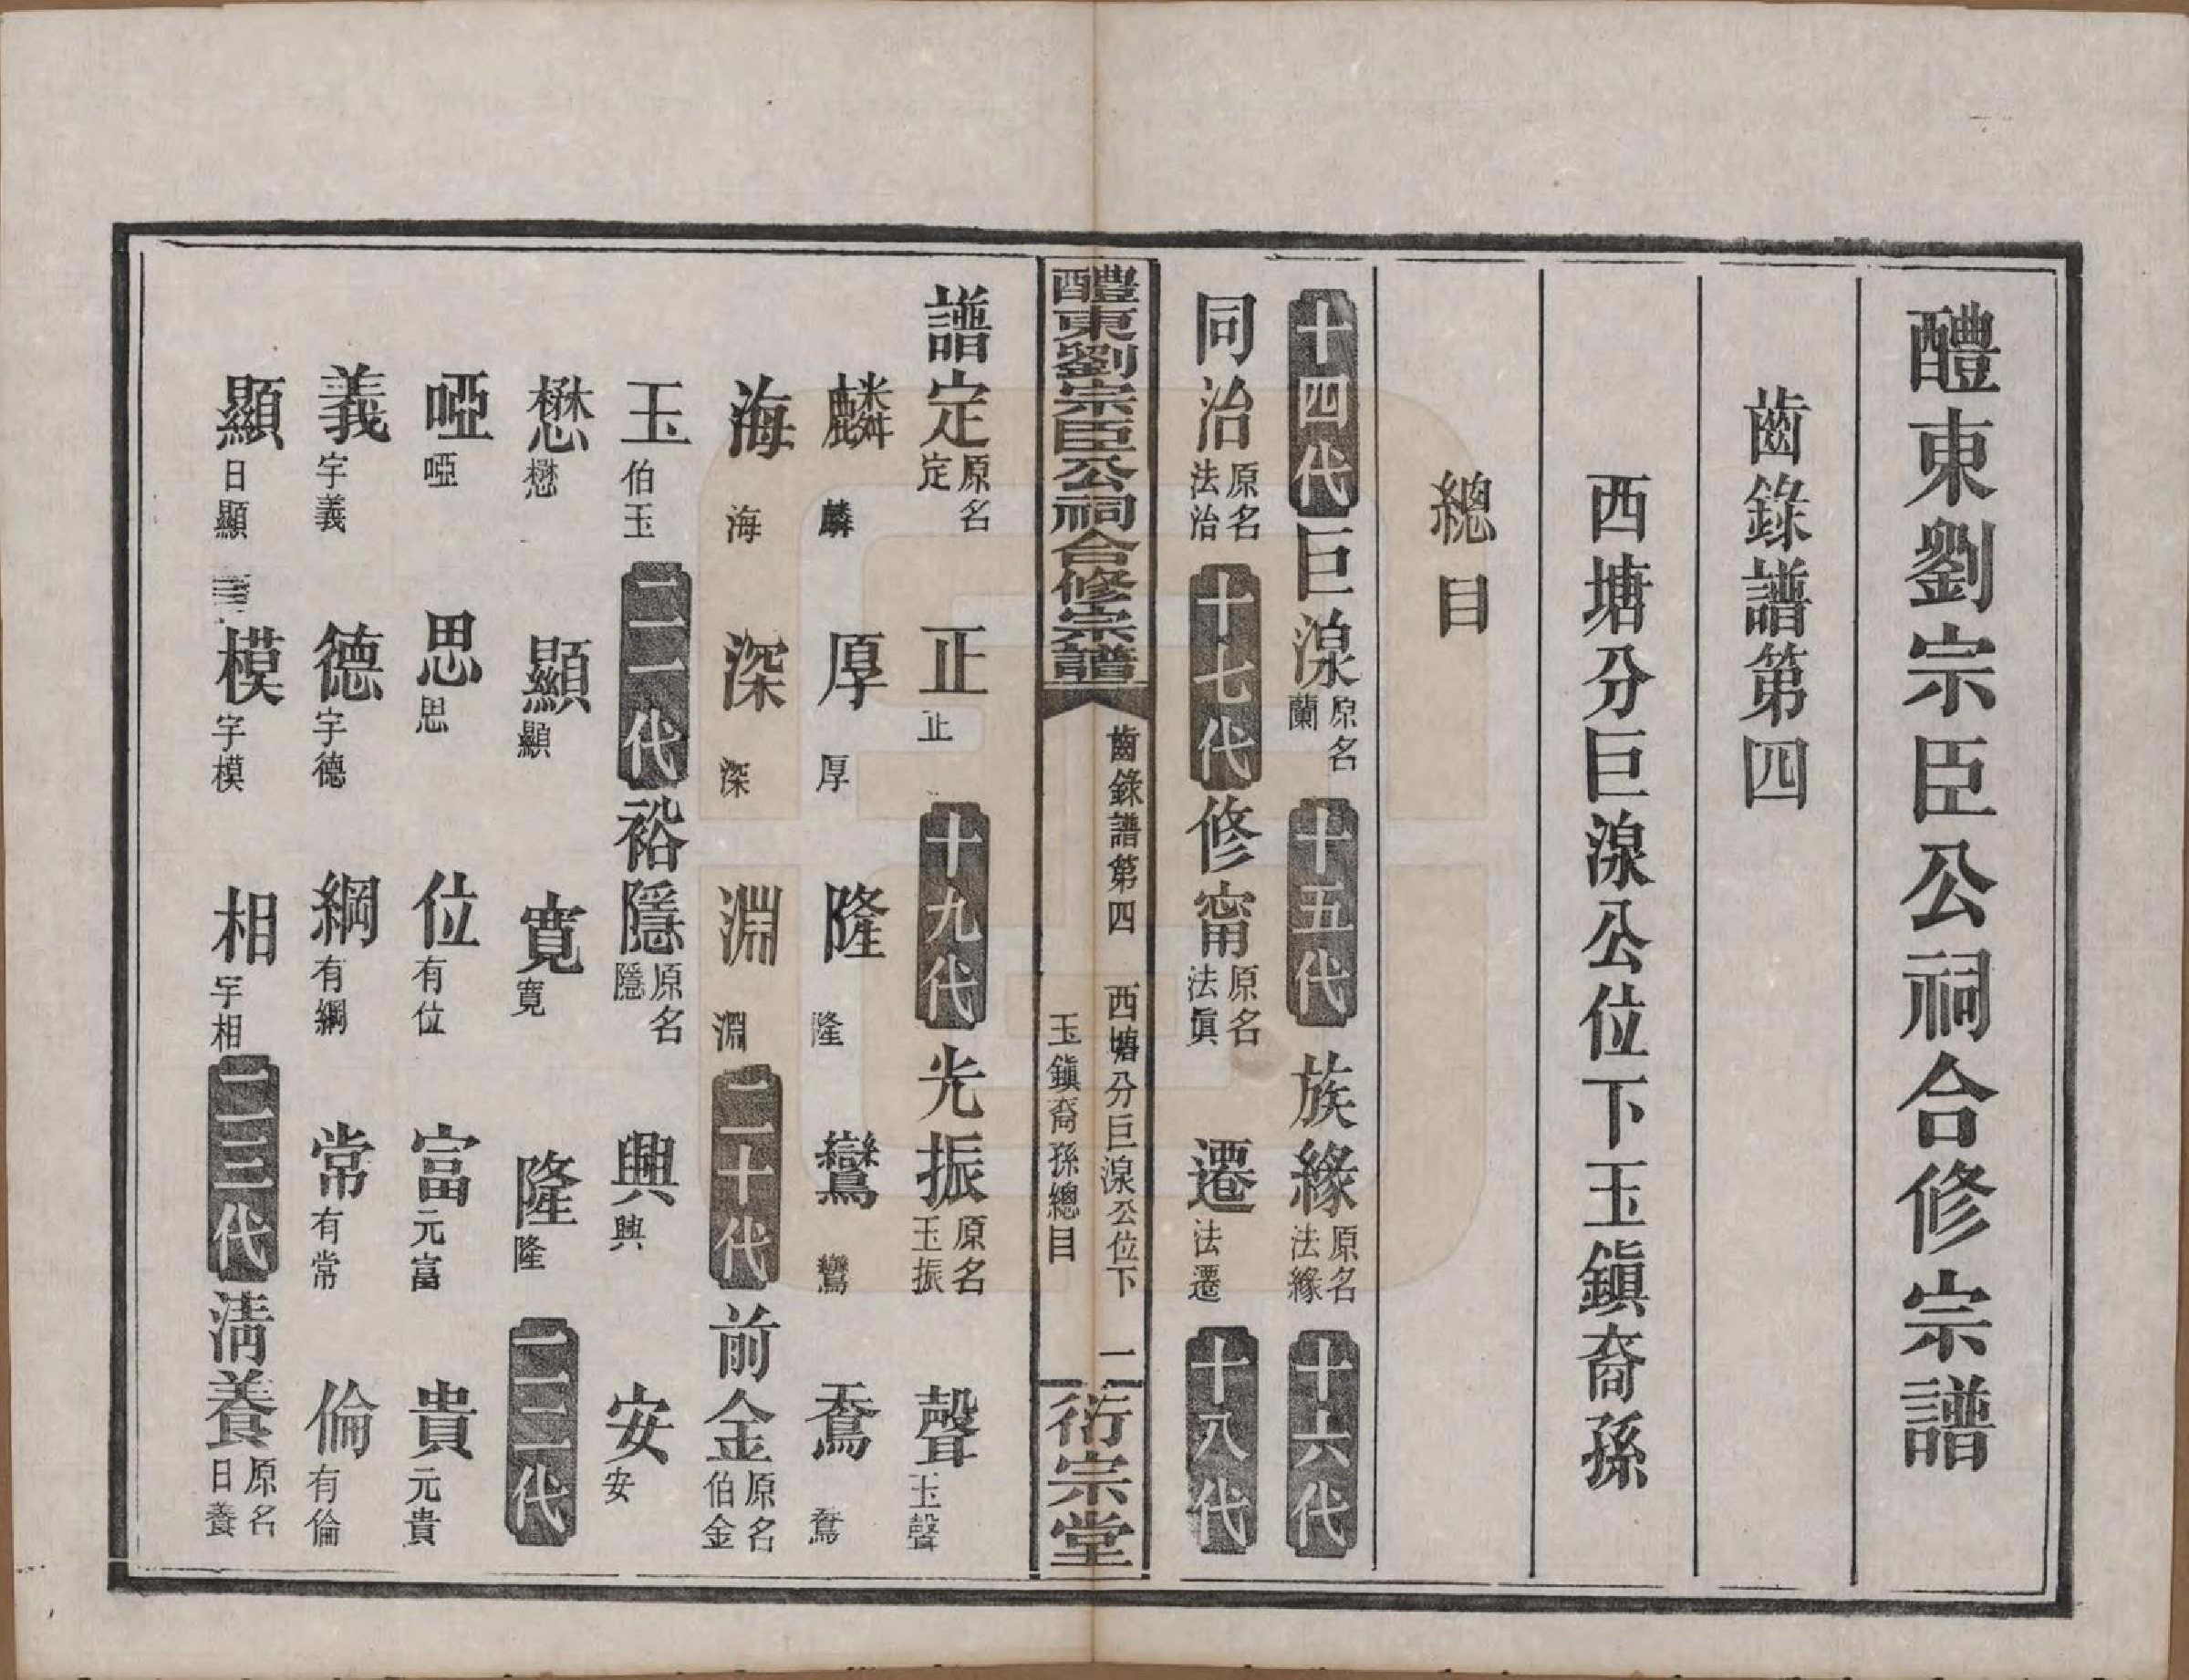 醴東劉宗臣公祠合修宗譜
齒錄譜第四
西塘分巨湶公位下玉鎭裔孫
總目
十四代 巨湶 原名蘭 十五代 族緣 原名法緣 十六代
同治 原名法治 十七代 修甯 原名法眞 遷 法遷 十八代
醴東劉宗臣公祠合修宗譜 齒錄譜第四 西塘分巨湶公位下玉鎭裔孫總目 一 衍宗堂
譜定 原名定 正 正 十九代 光振 原名玉振 聲 玉聲
麟 麟 厚 厚 隆 隆 鸞 鸞 鶱 鶱
海 海 深 深 淵 淵 二十代 前金 原名伯金
玉 伯玉 二一代 裕隱 原名隱 興 興 安 安
懋 懋 顯 顯 寬 寬 隆 隆 二二代
啞 啞 思 思 位 有位 富 元富 貴 元貴
義 宇義 德 宇德 綱 有綱 常 有常 倫 有倫
顯 日顯 模 宇模 相 宇相 二三代 淸養 原名日養